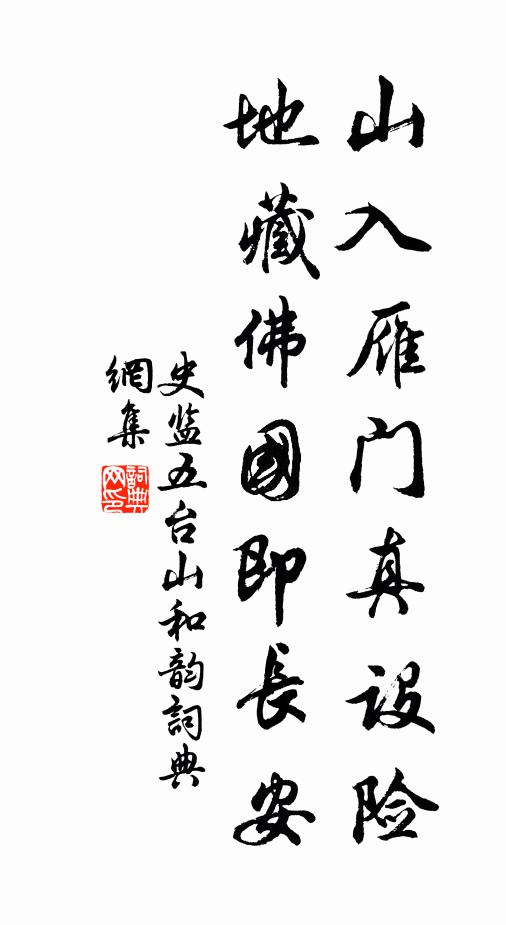 山入雁门真设险
地藏佛國即長安
史监五台山和韵詞典
網集
詞典
网印